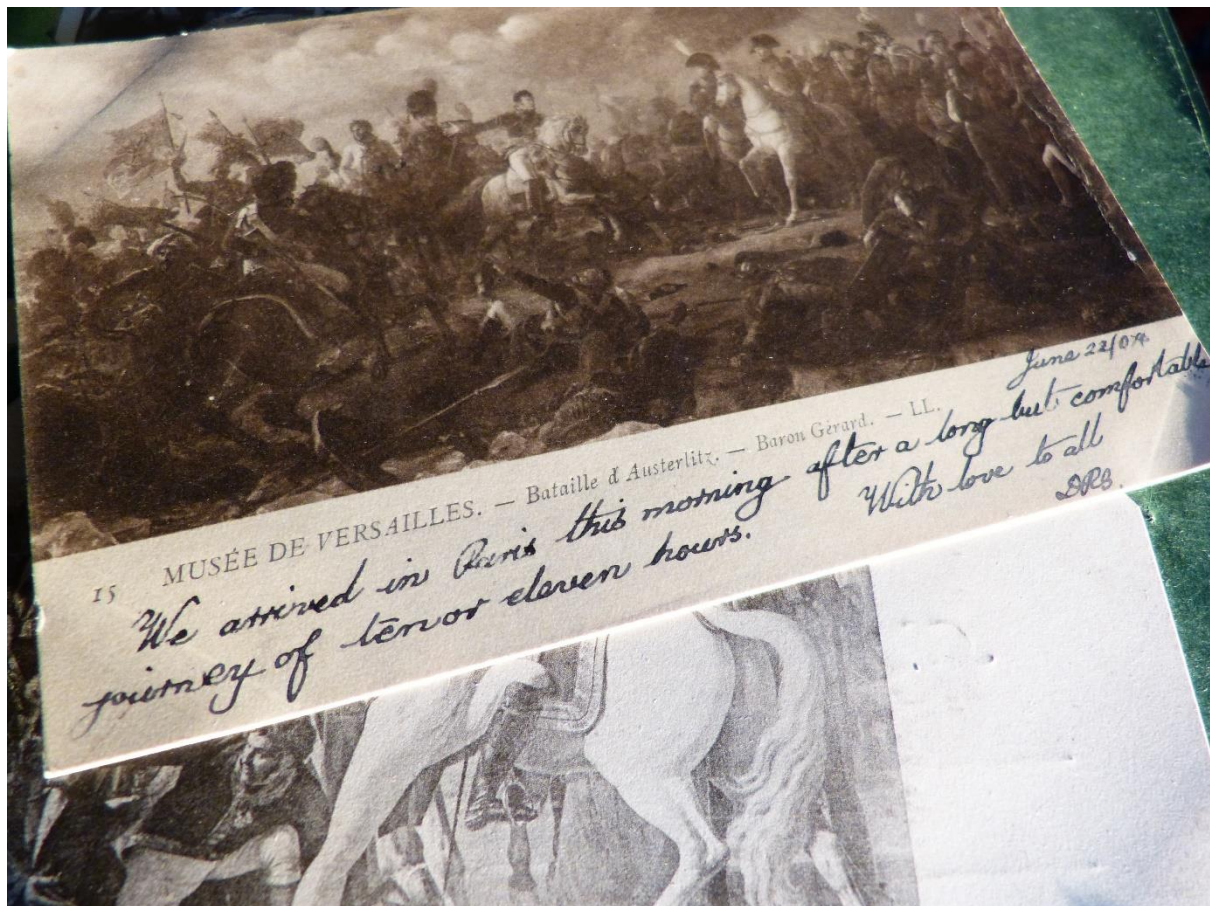 June 22/04.
15 MUSÉE DE VERSAILLES. — Bataille d'Austerlitz. — Baron Gérard. — LL.
We arrived in Paris this morning after a long but comfortable
journey of ten or eleven hours.
With love to all
DRB.